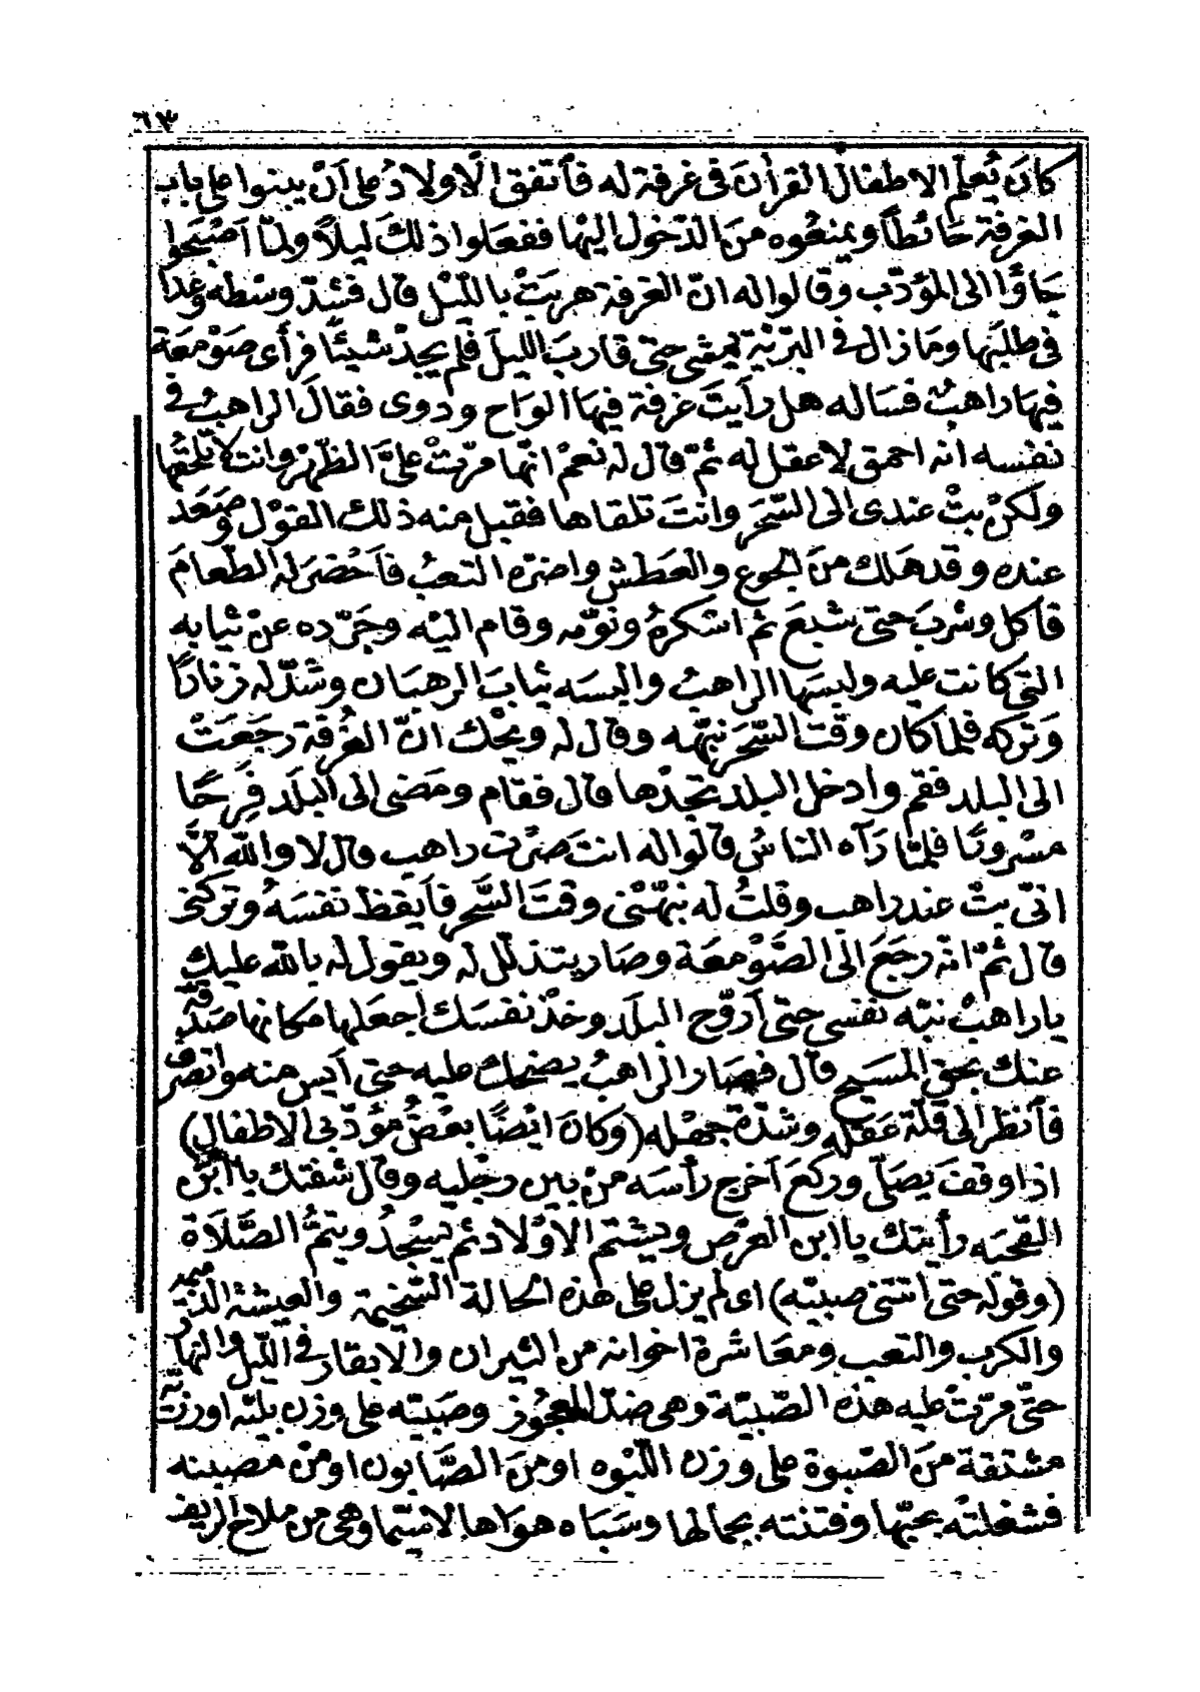 ٦٣
كانَ يُعلّم الاطفال القرأنَ فى غرفة له فأتفق الاولادُ على اَنْ يبنوا على باب
الغرفة حائطًا ويمنعُوه منَ الدّخول اليْها ففعلوا ذلكَ ليلاً ولمّا اَصْبَحُوا
جاؤا الى المؤدّب وقالوا له انّ الغرفة هربَتْ بالليْل قال فشدّ وسْطه وغدا
فى طلبَها ومَا زال فى البرّيّة يمشى حتى قاربَ الليلَ فلم يجدْ شيئًا فرأى صَوْمعَة
فيهَا راهبُ فسَاله هل رأيتَ غرفة فيهَا الواح ودوى فقالَ الراهبُ فى
نفسه انه احمق لا عقل له ثمّ قال له نعمْ انّها مرّتْ علىَّ الظهْر وانت لا تلحقُها
ولكنْ بتْ عندى الى السَّحَر وانتَ تلقاها فقبل منه ذلك القوْل وصَعَد
عنده وقد هَلك منَ الجوع والعَطش واضرّه التعبُ فاَحْضَرَ له الطعامَ
فأكل وشربَ حتى شبعَ ثم اسْكرهُ ونوّمه وقام اليْه وجَرّده عنْ ثيابه
التى كانت عليه ولبسَها الراهبُ والبسَه ثيابَ الرهبَان وشدّ له زنارًا
وَتركه فلما كان وقت السَّحَر نبّهه وقال له ويحْك انّ الغُرفة رجَعَتْ
الى البلد فقم وادخل البلد تجدْها قال فقام ومَضى الى البلَد فرِحًا
مسْرورًا فلمّا رَآه الناسُ قالوا له انتَ صرْت راهب قال لا والله الّا
انّى بتّ عند راهب وقلتُ له نبّهْنى وقتَ السَّحر فأيقظ نفسَهُ وتركنى
قال ثمّ انّه رجَعَ الى الصَّوْمعَة وصَار يتذلّل له ويقول له بالله عليك
يا راهبُ نبّه نفسى حتى اَروّح البلَد وخذْ نفسَك اجعَلها مكانها صَدقة
عنك بحق المسيح قال فصَار الراهبُ يضحك عليه حتى اَيس منه وانصرف
فأنظر الى قلّة عَقله وشدّة جهْله (وكانَ ايْضًا بعْضُ مؤدّبى الاطفال)
اذا وقفَ يصَلّى وركعَ اَخرج رأسَه منْ بين رجْليه وقال شفتك يا ابْن
القحبَه رأيتك يا ابن العرْص ويشتم الاوْلاد ثم يسْجدُ ويتمُّ الصَّلاَة
(وقوله حتى اَتتنى صبيّه) اى لم يزل على هذه الحالة السَّخيمة والعيشة الذميمه
والكرب والتعب ومعَاشرة اخوانه من الثيران والابقار فى الليل والنهار
حتّى مرّتْ عليه هذه الصّبيّة وهى ضدّ العجوز وصَبيّه على وزن بليّه او رزيّه
مشتقة منَ الصّبوة على وزن اللبْوه او منَ الصَّابون او منْ مصبنه
فشغلتْه بحبّها وفتنته بجمالها وسَبَاه هوَاها لاسيّما وهى من ملاح الريف